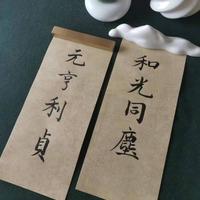 和光同塵
元亨利貞